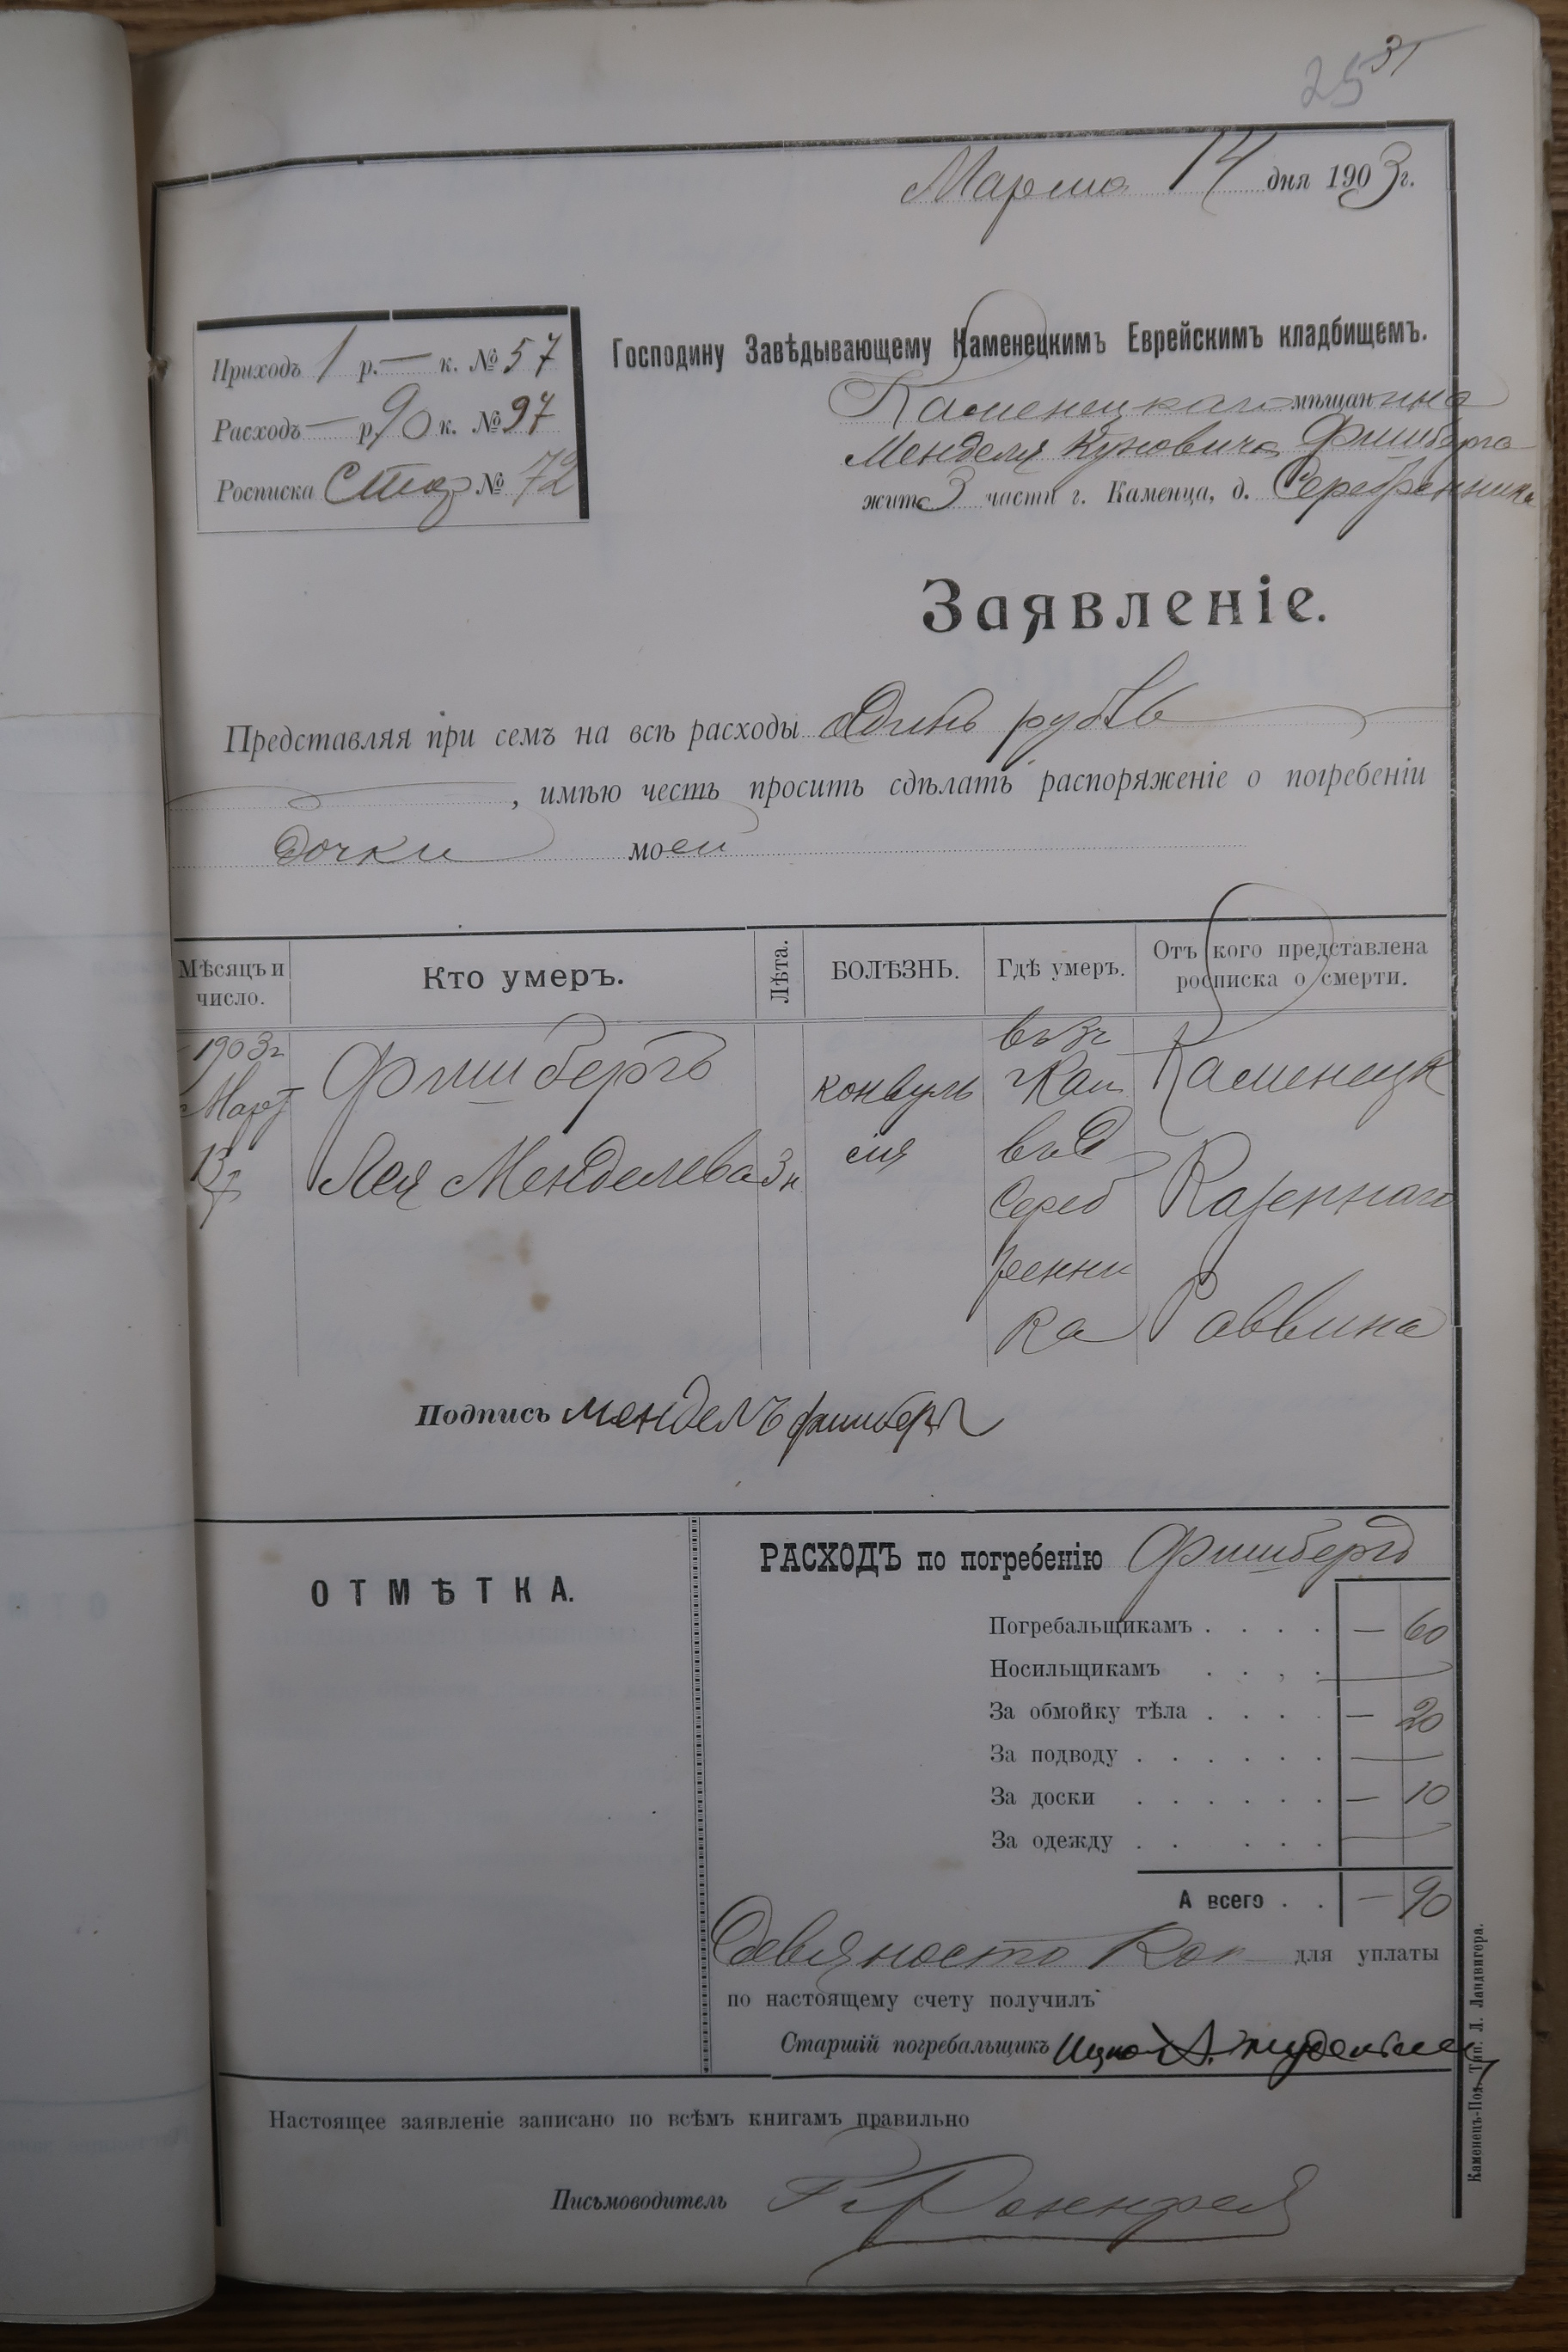 25 31
Марта 14 дня 1903 г.
Приходъ 1 р. — к. № 57
Расходъ — р. 90 к. № 97
Росписка № 72
Господину Завѣдывающему Каменецкимъ Еврейскимъ кладбищемъ.
Каменецкаго мѣщанина
Менделя Фишберга
жит. 3 части г. Каменца, д. Серебренника
Заявленіе.
Представляя при семъ на всѣ расходы Одинъ рубль
, имѣю честь просить сдѣлать распоряженіе о погребеніи
дочки моей
Мѣсяцъ и число. Кто умеръ. Лѣта. БОЛѢЗНЬ. Гдѣ умеръ. Отъ кого представлена росписка о смерти.
1903 г
Март
13
Фишбергъ
Лея Менделева
3 н
конвуль
сія
въ 3 ч
г Кам
въ д
Сереб
ренни
ка
Каменецк
Казеннаго
Раввина
Подпись Мендель Фишберг
ОТМѢТКА.
РАСХОДЪ по погребенію Фишбергъ
Погребальщикамъ . . . . — 60
Носильщикамъ . . , . —
За обмойку тѣла . . . . — 20
За подводу . . . . . . —
За доски . . . . . . — 10
За одежду . . . . . —
А всего . . — 90
Девяносто коп для уплаты
по настоящему счету получилъ
Старшій погребальщикъ
Настоящее заявленіе записано по всѣмъ книгамъ правильно
Письмоводитель
Каменецъ-Под. Тип. Л. Ландвигера.